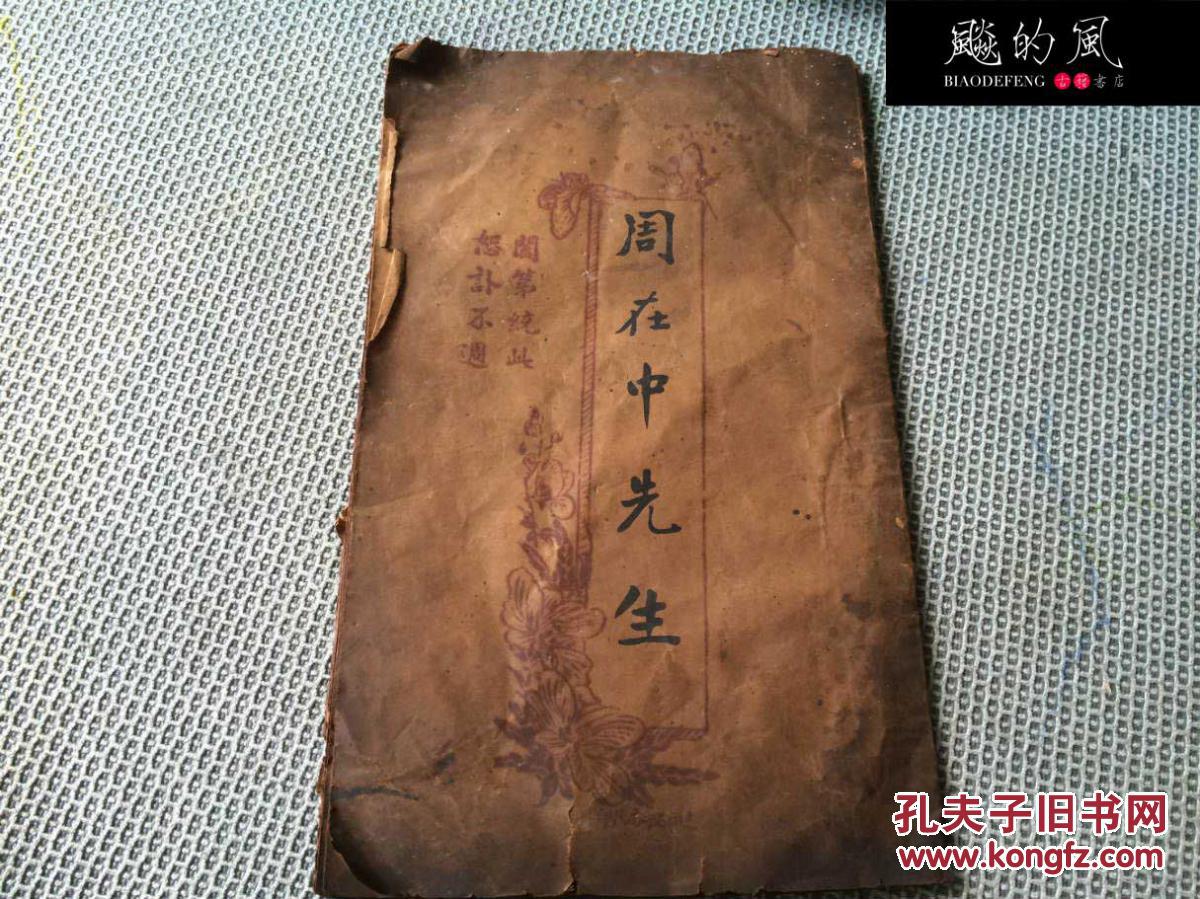 飈的風
BIAODEFENG 古籍書店
周在中先生
闔第統此
恕訃不週
孔夫子旧书网
www.kongfz.com